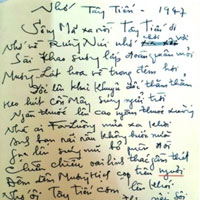 Nhớ Tây Tiến - 1947
Sông Mã xa rồi Tây Tiến ơi
Nhớ về Rừng Núi nhớ
Sài Khao sương lấp đoàn quân mỏi
Mường Lát hoa về trong đêm hơi
Dốc lên khúc khuỷu dốc thăm thẳm
Heo hút cồn mây súng ngửi trời
Ngàn thước lên cao ngàn thước xuống
Nhà ai Pha Luông mưa xa khơi
Anh bạn dãi dầu không bước nữa
Gục lên súng mũ bỏ quên đời
Chiều chiều oai linh thác gầm thét
Đêm đêm Mường Hịch cọp trêu người
Nhớ ôi Tây Tiến cơm lên khói